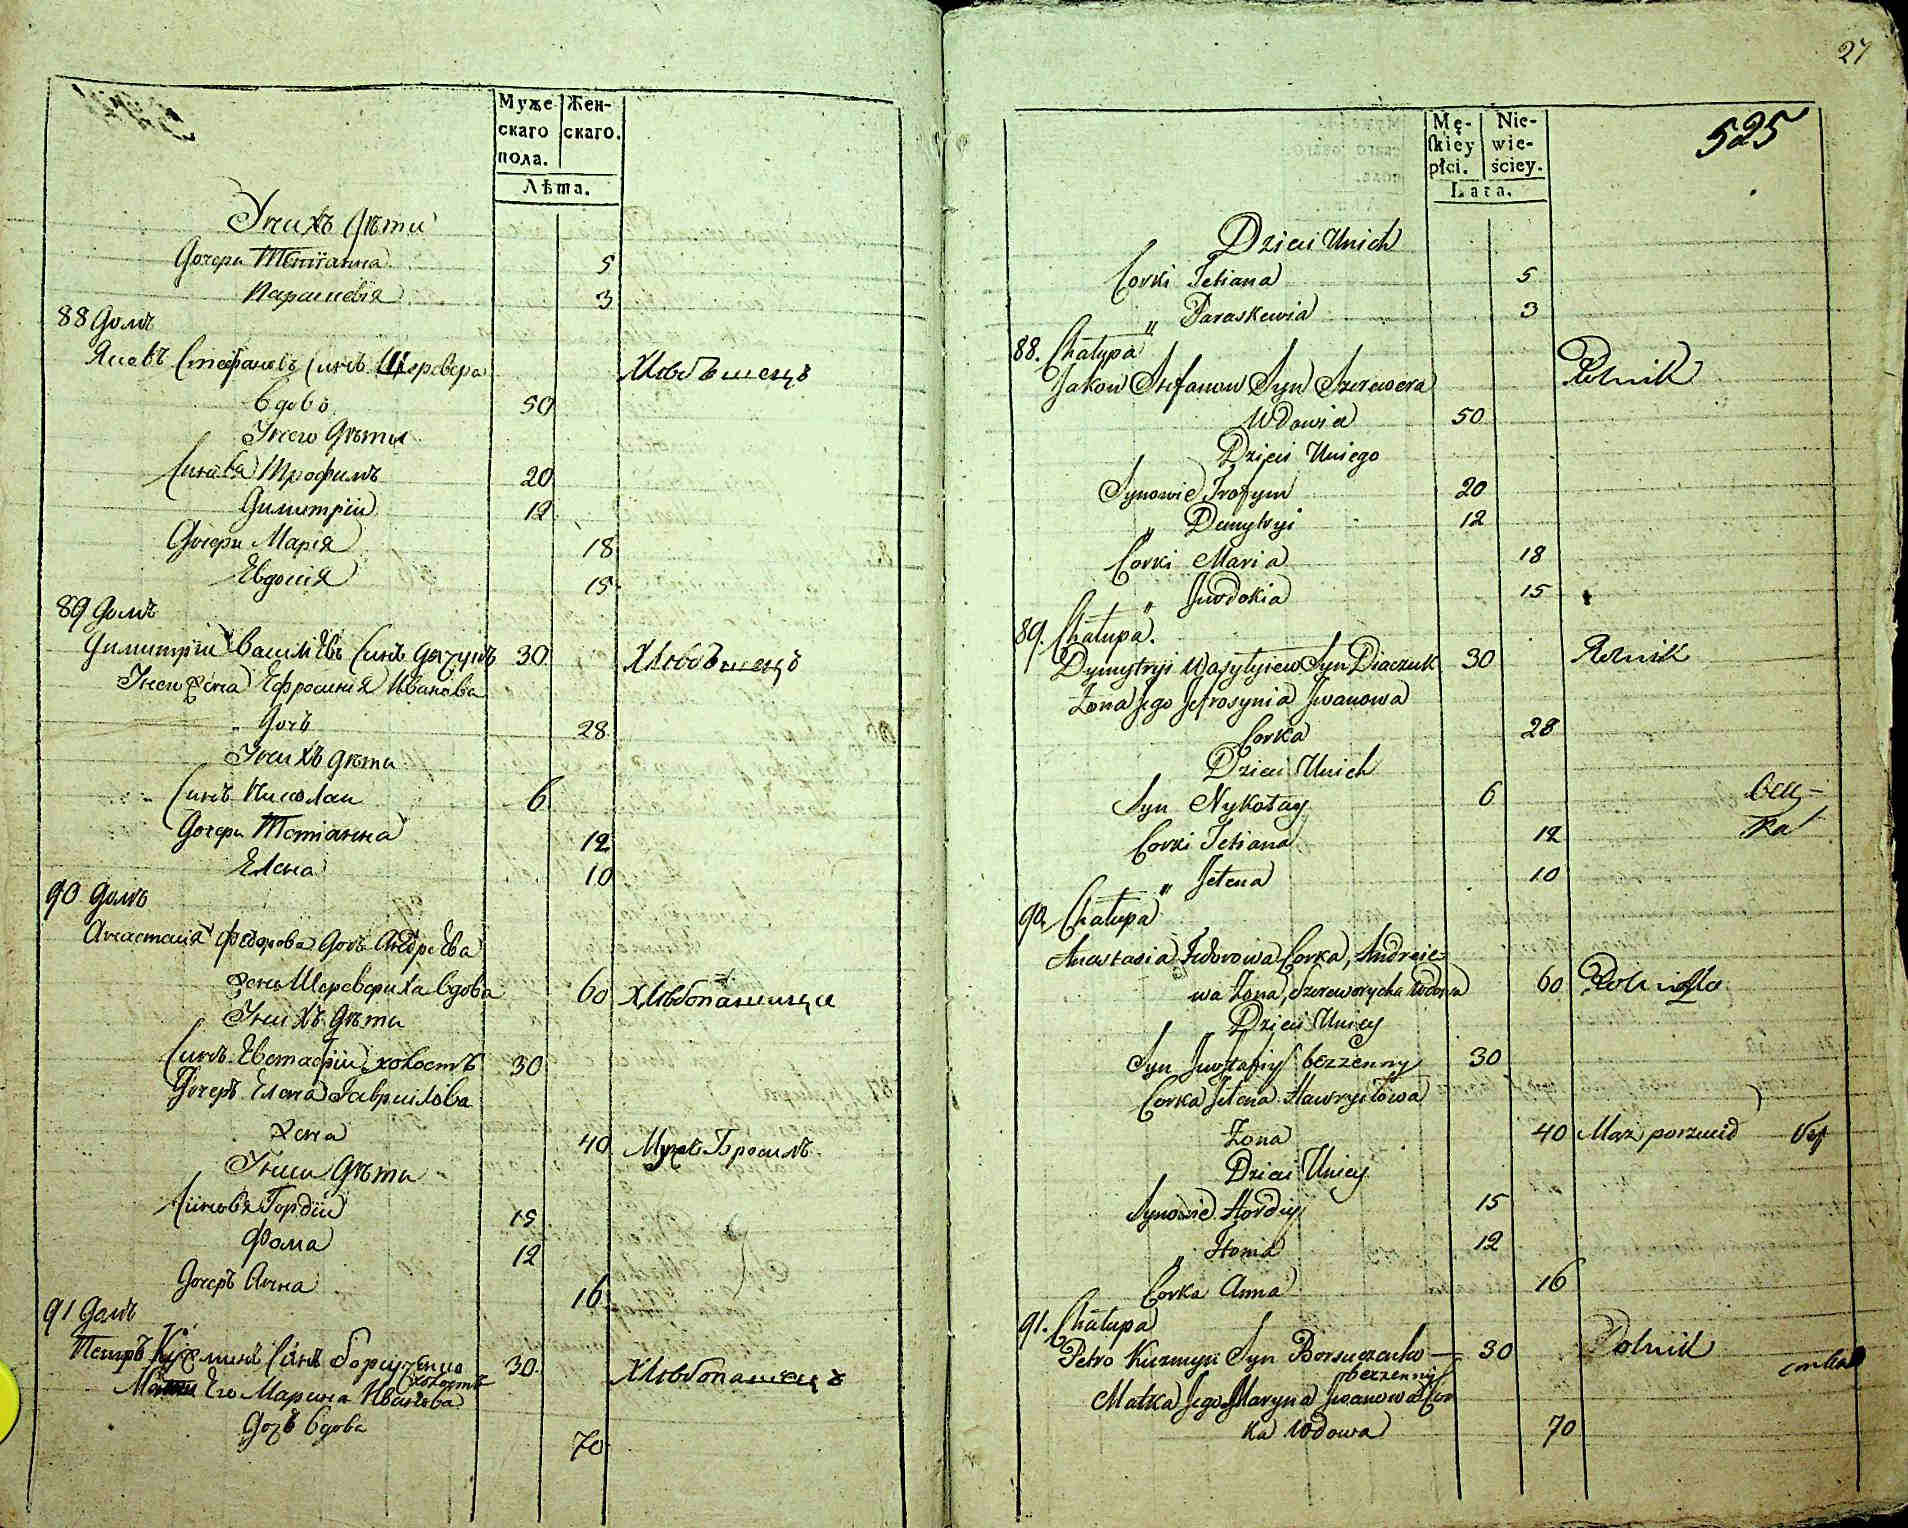 Муже-
скаго
пола.
Жен-
скаго.
Лѣта.
У нихъ дѣти
Дочери Тетіанна 5
Параскевія 3
88 Домъ
Яковъ Стефановъ Синъ Шеревера
вдовъ 50
У него дѣти
Синовя Трофимъ 20
Димитрій 12
Дочери Марія 18
Евдокія 15
89 Домъ
Димитрій Василіевъ Синъ 30
Жена Ефросинія Иванова
Дочь 28
У нихъ дѣти
Синъ Николай 6
Дочери Тетіанна 12
Елена 10
90 Домъ
Анастасія Федорова Дочь Андреева
жена Шереверіха вдова 60
дѣти
Синъ Евстафій холостъ 30
Дочерь Елена Гаврилова
жена 40 Мужъ Бросилъ
дѣти
Синовя Гордій 15
Фома 12
Дочерь Анна 16
91 Домъ
Петръ Кузминъ Синъ Борсученко 30
холостъ
Его Марина Иванова
Дочь вдова 70
27
525
Mę-
skiey
płci.
Nie-
wie-
ściey.
Lata.
Dzieci Unich
Corki Tetiana 5
" Paraskewia 3
88. Chałupa
Jakow Stefanow Syn Szerewera Rolnik
Wdowia 50
Dzieci Uniego
Synowie Trofym 20
" Dmytryi 12
Corki Maria 18
" Jwdokia 15
89. Chałupa.
Dymytryi Wasylyiew Syn Diaczuk 30 Rolnik
Żona Jego Jefrosynia Jwanowa
Corka 28
Dzieci Unich
Syn Nykołay 6
Corki Tetiana 12
" Jełena 10
90. Chałupa
Anastasia Fedorowa Corka, Andreie-
wa Żona, Szereworycha Wdowa 60
Dzieci Uniey
Syn Jwstafiy bezzenny 30
Corka Jełena Hawryłowa
Żona 40 Mąz porzucił
Dzieci Uniey
Synowie Hordiy 15
" Homa 12
Corka Anna 16
91. Chałupa
Petro Kuzmyn Syn Borsuczenko — 30 Rolnik
bezzenny
Matka Jego Maryna Jwanowa Cor
ka Wdowa 70